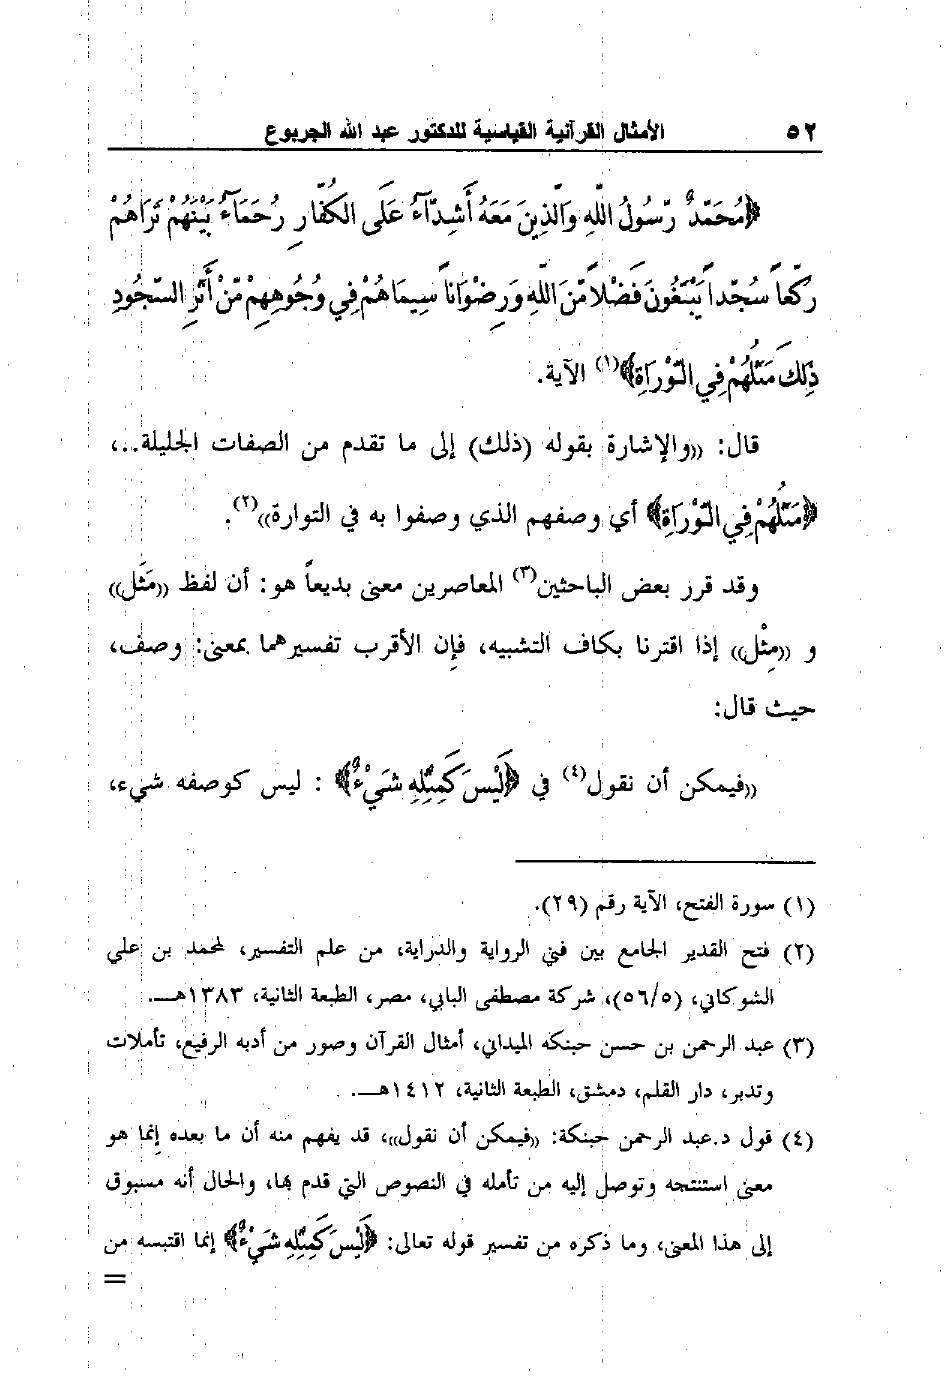 ٥٢ الأمثال القرآنية القياسية للدكتور عبد الله الجربوع
﴿مُحَمَّدٌ رَّسُولُ اللَّهِ وَالَّذِينَ مَعَهُ أَشِدَّآءُ عَلَى الكُفَّارِ رُحَمَآءُ بَيْنَهُمْ تَرَاهُمْ
رُكَّعاً سُجَّداً يَبْتَغُونَ فَضْلاً مِّنَ اللَّهِ وَرِضْوَاناً سِيمَاهُمْ فِي وُجُوهِهِمْ مِّنْ أَثَرِ السُّجُودِ
ذَلِكَ مَثَلُهُمْ فِي التَّوْرَاةِ﴾(١) الآية.
قال: ((والإشارة بقوله (ذلك) إلى ما تقدم من الصفات الجليلة..،
﴿مَثَلُهُمْ فِي التَّوْرَاةِ﴾ أي وصفهم الذي وصفوا به في التوارة))(٢).
وقد قرر بعض الباحثين(٣) المعاصرين معنى بديعاً هو: أن لفظ ((مَثَل))
و ((مِثْل)) إذا اقترنا بكاف التشبيه، فإن الأقرب تفسيرهما بمعنى: وصف،
حيث قال:
((فيمكن أن نقول(٤) في ﴿لَيْسَ كَمِثْلِهِ شَيْءٌ﴾ : ليس كوصفه شيء،
(١) سورة الفتح، الآية رقم (٢٩).
(٢) فتح القدير الجامع بين فني الرواية والدراية، من علم التفسير، لمحمد بن علي
الشوكاني، (٥٦/٥)، شركة مصطفى البابي، مصر، الطبعة الثانية، ١٣٨٣هـ.
(٣) عبد الرحمن بن حسن حبنكه الميداني، أمثال القرآن وصور من أدبه الرفيع، تأملات
وتدبر، دار القلم، دمشق، الطبعة الثانية، ١٤١٢هـ.
(٤) قول د.عبد الرحمن حبنكة: ((فيمكن أن نقول))، قد يفهم منه أن ما بعده إنما هو
معنى استنتجه وتوصل إليه من تأمله في النصوص التي قدم بها، والحال أنه مسبوق
إلى هذا المعنى، وما ذكره من تفسير قوله تعالى: ﴿لَيْسَ كَمِثْلِهِ شَيْءٌ﴾ إنما اقتبسه من
=